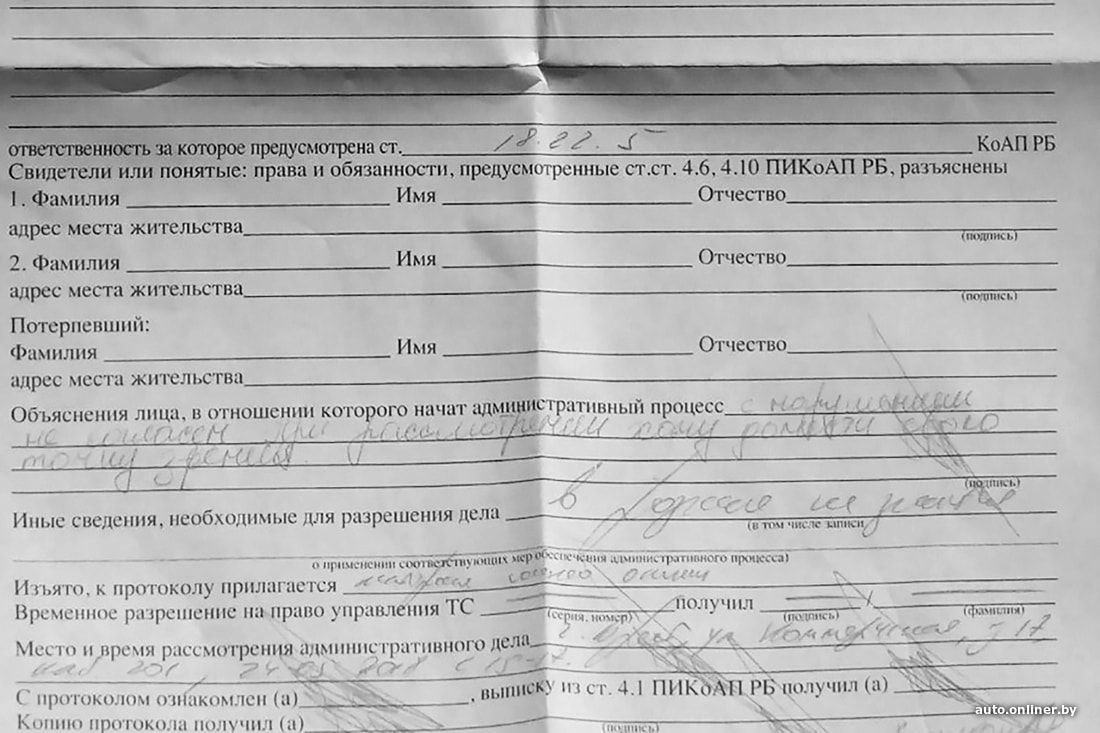 ответственность за которое предусмотрена ст. 18.22.5 КоАП РБ
Свидетели или понятые: права и обязанности, предусмотренные ст.ст. 4.6, 4.10 ПИКоАП РБ, разъяснены
1. Фамилия Имя Отчество
адрес места жительства
(подпись)
2. Фамилия Имя Отчество
адрес места жительства
(подпись)
Потерпевший:
Фамилия Имя Отчество
адрес места жительства
Объяснения лица, в отношении которого начат административный процесс с
не согласен при рассмотрении хочу донести свою
точку зрения.
(подпись)
Иные сведения, необходимые для разрешения дела в
(в том числе записи
о применении соответствующих мер обеспечения административного процесса)
Изъято, к протоколу прилагается
Временное разрешение на право управления ТС получил
(серия, номер) (подпись) (фамилия)
Место и время рассмотрения административного дела г. Брест, ул Коммерческая, д 17
каб 201, 24 05 2018 с 15-17.
С протоколом ознакомлен (а) , выписку из ст. 4.1 ПИКоАП РБ получил (а)
Копию протокола получил (а)
(подпись)
auto.onliner.by